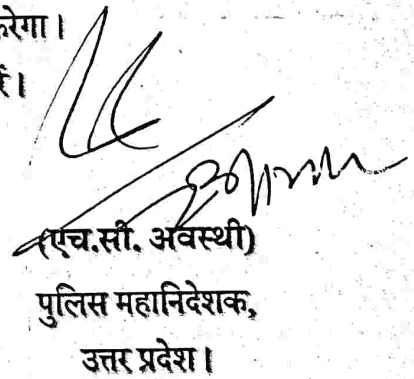 करेगा।
रें।
(एच.सी. अवस्थी)
पुलिस महानिदेशक,
उत्तर प्रदेश।